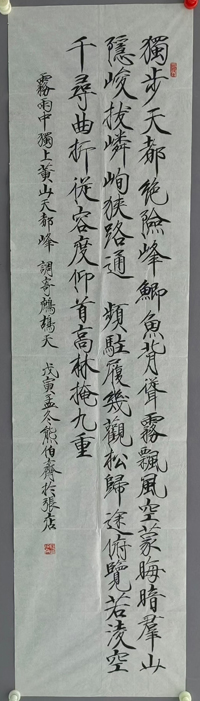 獨步天都絕險峰鯽魚背聳霧飄風空蒙晦暗羣山
隱峻拔嶙峋狹路通 頻駐屐幾觀松歸途俯覽若凌空
千尋曲折從容度仰首高林掩九重
霧雨中獨上黃山天都峰 調寄鷓鴣天 戊寅孟冬熊伯齊於張店